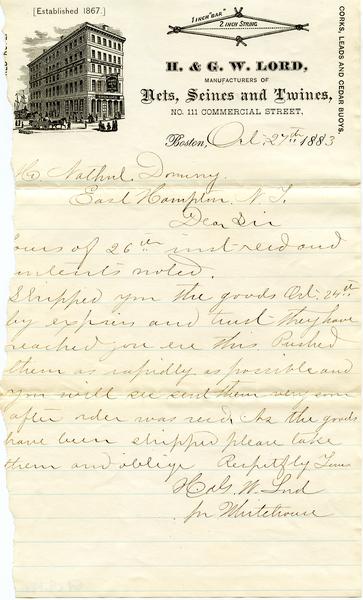 [Established 1867.]
1 INCH "BAR"
2 INCH STRING
CORKS, LEADS AND CEDAR BUOYS.
H. & G. W. LORD,
MANUFACTURERS OF
Nets, Seines and Twines,
NO. 111 COMMERCIAL STREET,
Boston, Oct. 27th 1883
Mr Nathnl. Dominy.
East Hampton N. Y.
Dear Sir
ours of 26th inst recd and
ontents noted.
Shipped you the goods Oct. 24th
by express and trust they have
reached you ere this Pushed
them as rapidly as possible and
you will see sent them very soon
after order was recd. As the goods
have been shipped please take
them and oblige Respctfly Yours
H & G. W. Lord
per Whitehouse